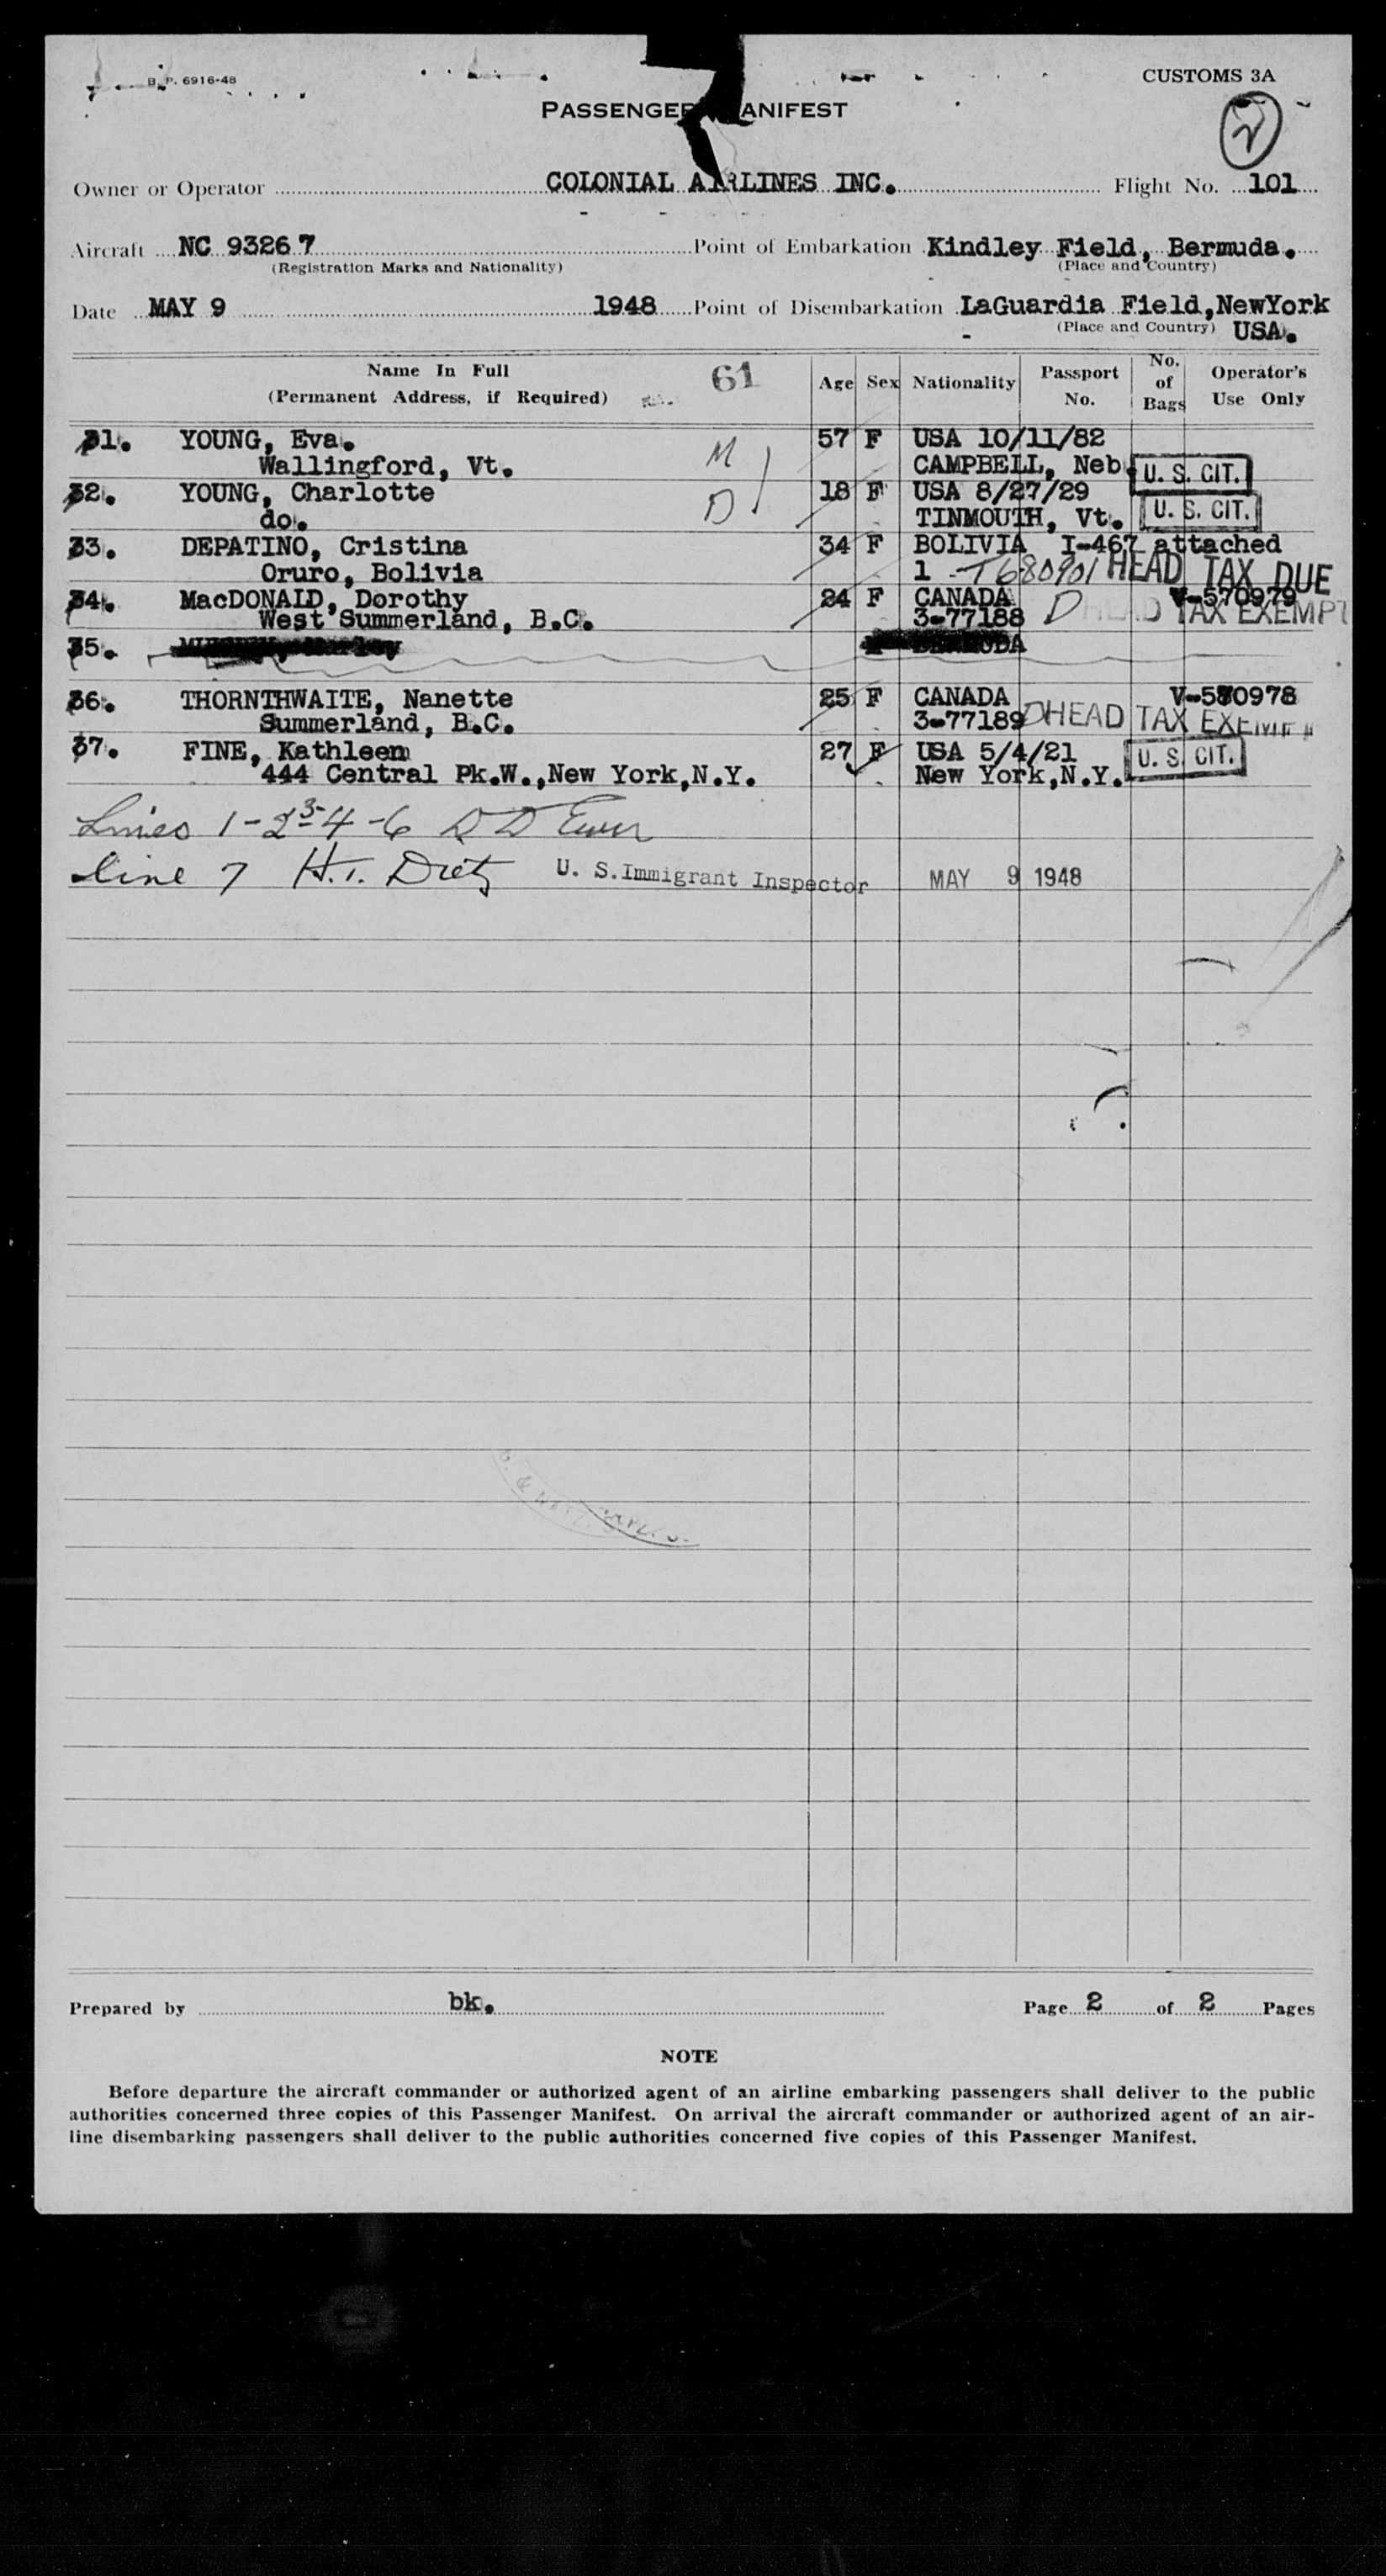 B. P. 6916-48
CUSTOMS 3A
PASSENGER MANIFEST
2
Owner or Operator COLONIAL AIRLINES INC. Flight No. 101
Aircraft NC 93267 Point of Embarkation Kindley Field, Bermuda.
(Registration Marks and Nationality) (Place and Country)
Date MAY 9 1948 Point of Disembarkation LaGuardia Field,NewYork
(Place and Country) USA.
Name In Full 61 Age Sex Nationality Passport No. No. of Bags Operator's Use Only
(Permanent Address, if Required)
31. YOUNG, Eva. M 57 F USA 10/11/82
Wallingford, Vt. CAMPBELL, Neb. U. S. CIT.
32. YOUNG, Charlotte D 18 F USA 8/27/29
do. TINMOUTH, Vt. U. S. CIT.
33. DEPATINO, Cristina 34 F BOLIVIA I-467 attached
Oruro, Bolivia 1 - T680901 HEAD TAX DUE
34. MacDONALD, Dorothy 24 F CANADA V-570979
West Summerland, B.C. 3-77188 D HEAD TAX EXEMPT
35. BERMUDA
36. THORNTHWAITE, Nanette 25 F CANADA V-570978
Summerland, B.C. 3-77189 D HEAD TAX EXEMPT
37. FINE, Kathleen 27 F USA 5/4/21
444 Central Pk.W.,New York,N.Y. New York,N.Y. U. S. CIT.
Lines 1-2-3-4-6 D D Ewer
line 7 H.T. Dietz U. S. Immigrant Inspector MAY 9 1948
Prepared by bk. Page 2 of 2 Pages
NOTE
Before departure the aircraft commander or authorized agent of an airline embarking passengers shall deliver to the public
authorities concerned three copies of this Passenger Manifest. On arrival the aircraft commander or authorized agent of an air-
line disembarking passengers shall deliver to the public authorities concerned five copies of this Passenger Manifest.